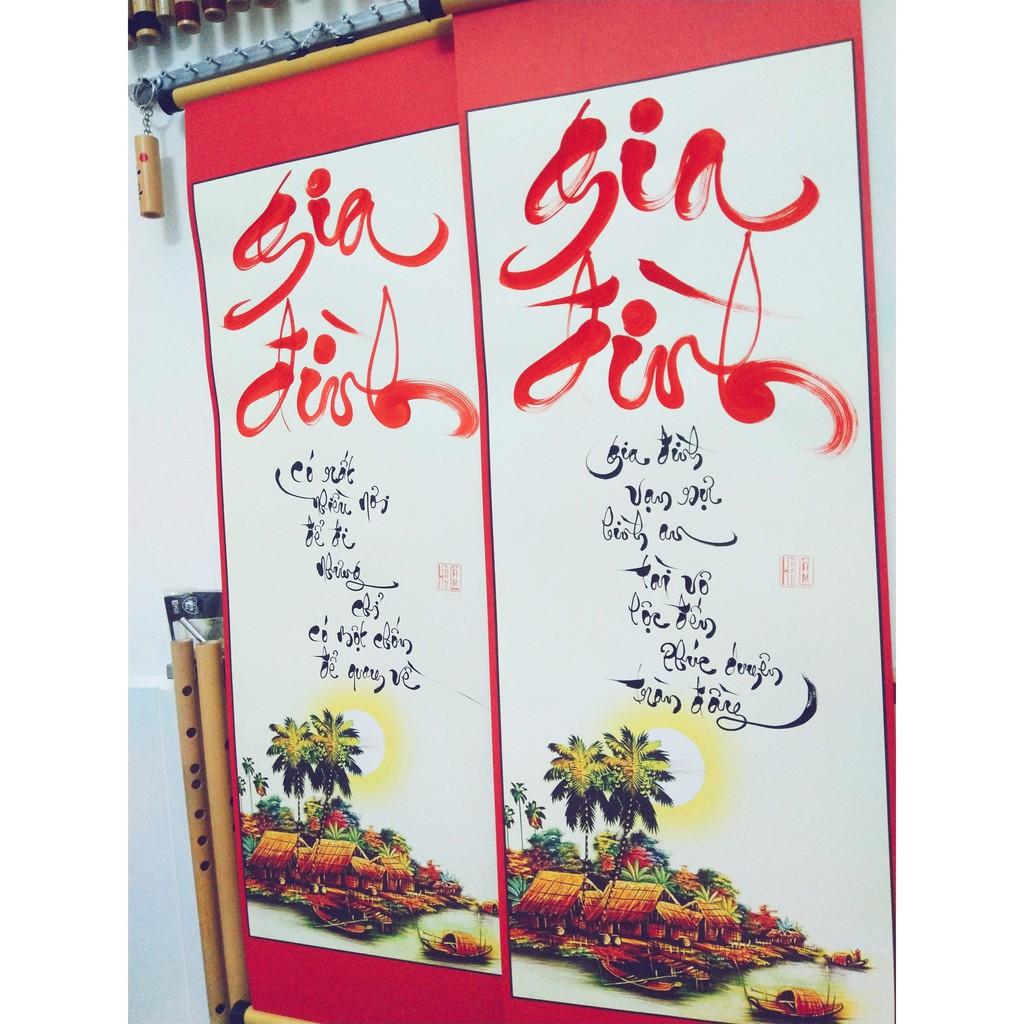 Gia
đình
có rất
nhiều nơi
để đi
nhưng
chỉ
có một chốn
để quay về
Gia
đình
gia đình
vạn sự
bình an
tài vô
lộc đến
phúc duyên
tràn đầy